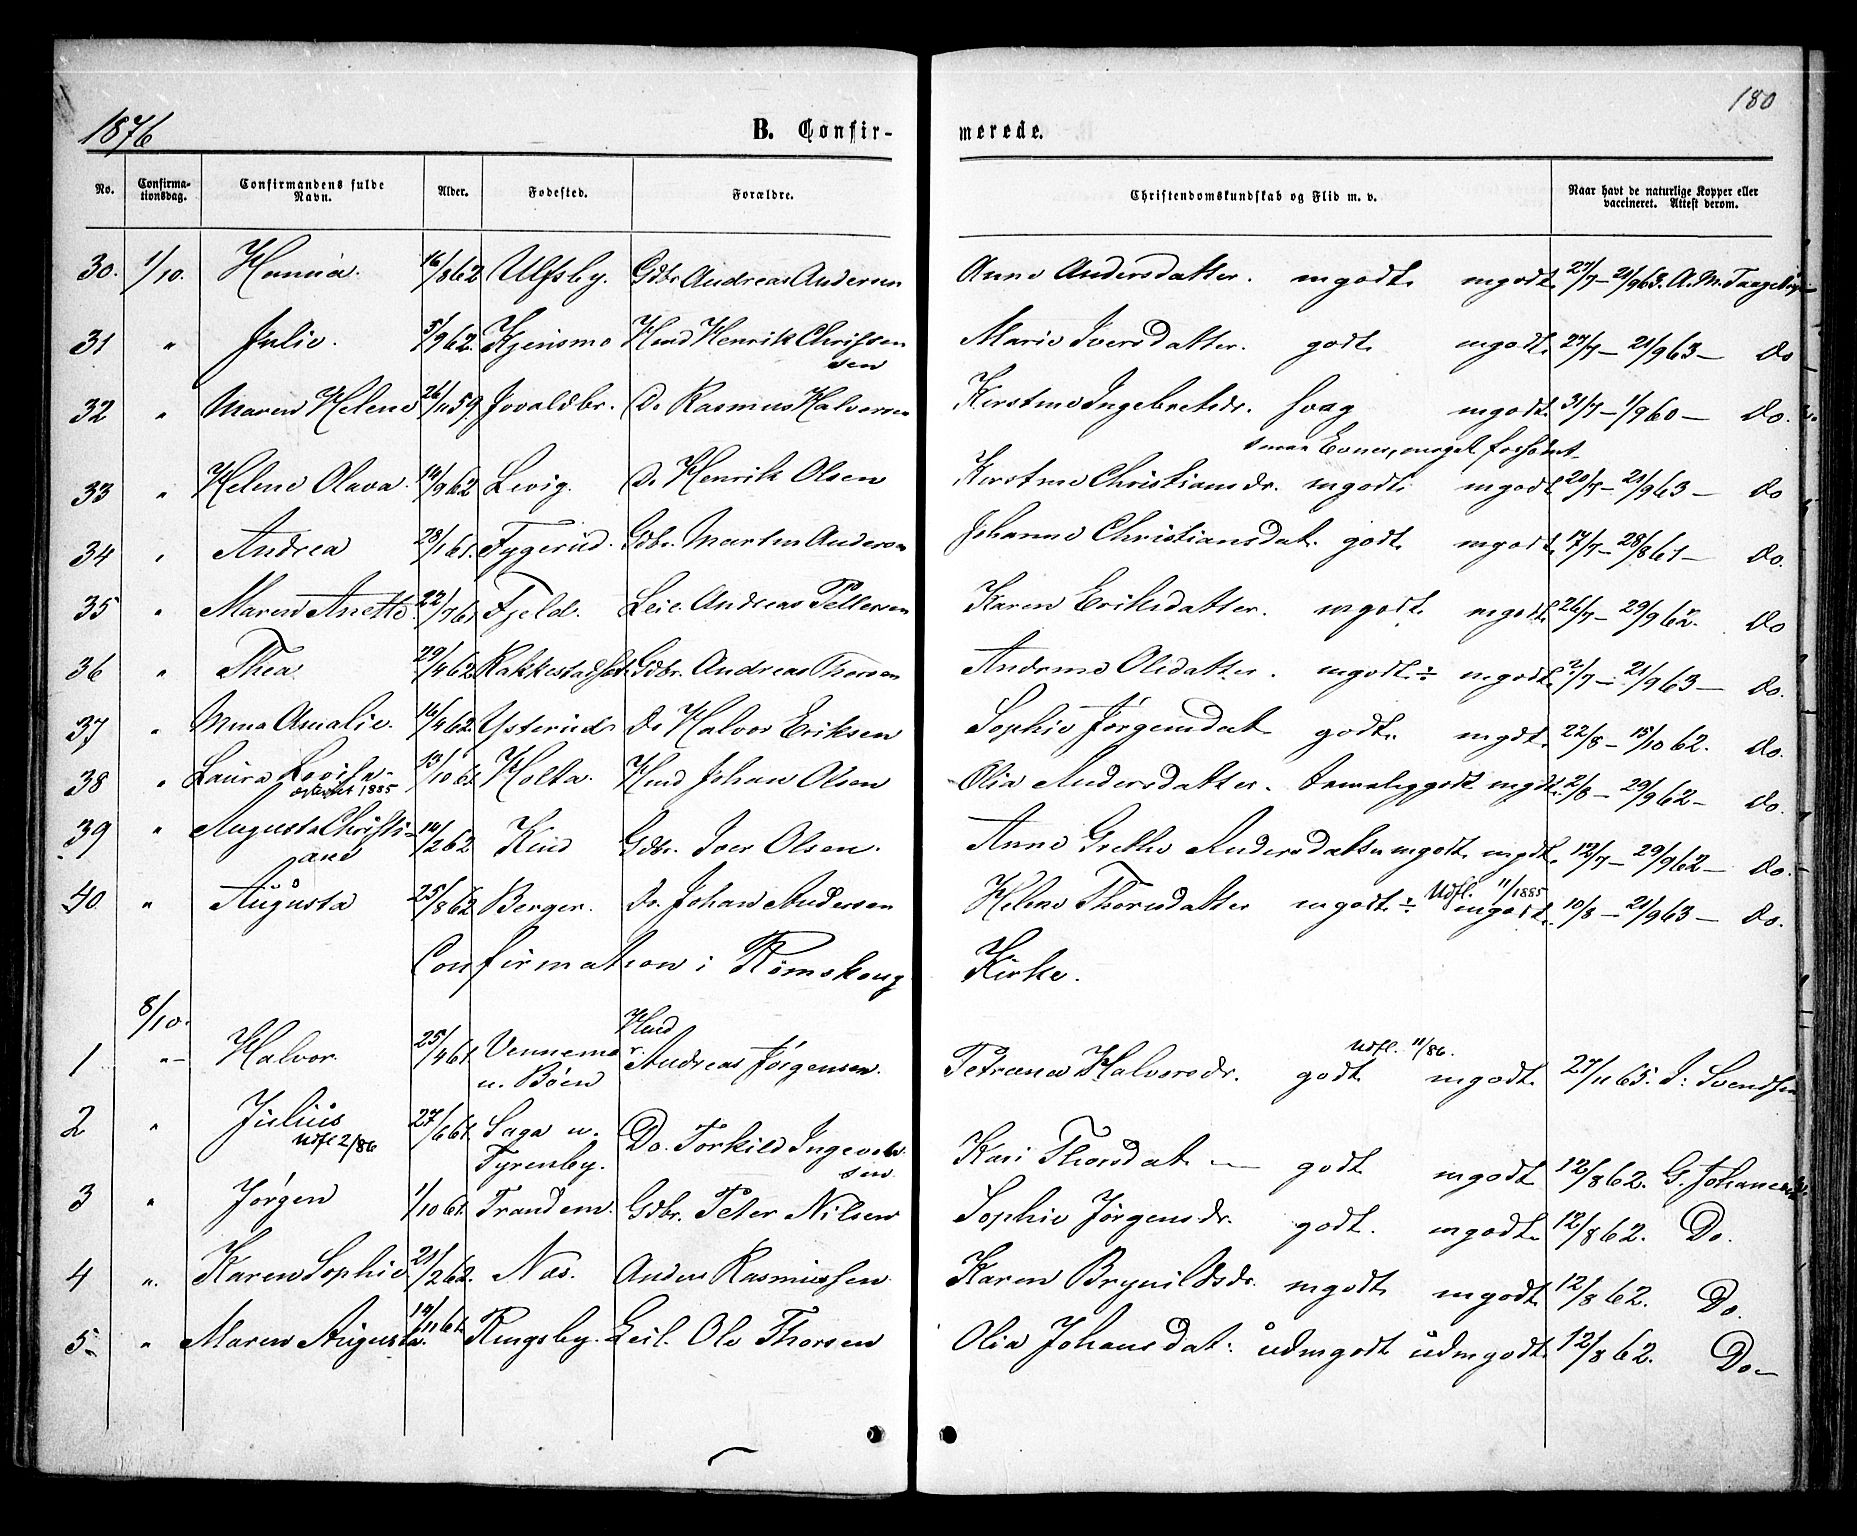 180
1876 B. Confir- merede.
No. Confirma-tionsdag. Confirmandens fulde Navn. Alder. Fødested. Forældre. Christendomskundskab og Flid m. v. Naar havt de naturlige Kopper eller vaccineret. Attest derom.
30. 1/10. Hanna. 16/8 62 Ulfsby. Gdbr. Andreas Andersen Anne Andersdatter. mgodt mgodt 27/7 – 21/9 63. A. M.
31 " Julie. 5/9 62. Kjensmo Hmd Henrik Chrissen Marie Iversdatter. godt mgodt 27/7 – 21/9 63 – Do
sen
32 " Maren Helene 26/11 59 Do Rasmus Halvorsen Kirstine Ingebretsdr. svag mgodt 31/7 – 1/9 60 – Do.
smaa Evner, meget forsømt
33 " Helene Olava. 14/9 62 Levig. Do Henrik Olsen Kirstine Christiansdr. mgodt mgodt 20/8 – 21/9 63 – Do
34 " Andrea 23/1 61. Tygerud. Gdbr. Martin Andersen Johanne Christiansdat. godt mgodt 17/7 – 28/8 61 – Do.
35 " Maren Anette 22/7 61 Fjeld. Leie. Andreas Pettersen Karen Eriksdatter. mgodt mgodt 26/7 – 29/9 62. Do
36 " Thea 29/4 62. Gdbr. Andreas Thorsen Olsdatter. mgodt ÷ mgodt 2/7 – 21/9 63 – Do.
37 " Mina Amalie. 16/4 62. Ysterud Do Halvor Eriksen Sophie Jørgensdat godt. mgdt. 22/8 – 15/10 62. Do.
38 " Laura Lovisa 13/10 61 Holta. Hmd Johan Olsen Olia Andersdatter. temeliggodt mgdt. 2/8 – 29/9 62 – Do.
attestet 1885
39 " Augusta Christi- 14/2 62 Kind Gdbr. Iver Olsen. Anne Grethe Andersdatter mgodt mgdt. 12/7 – 29/9 62 – Do.
ane
40 " Augusta 25/8 62 Berger. Do. Johan Andersen Helene Thorsdatter mgodt ÷ Udfl. 11/1885 mgodt. 10/8 – 21/9 63 – Do.
Confirmation i Rømskoug Kirke.
8/10. Hmd Udfl. 11/86.
1 " – Halvor. 25/4 61. Vennemo Andreas Jørgensen. Halvorsdr. godt mgodt. 27/11 65. Svendsen
u. Bøen
2 " Julius 27/6 61. Saga u. Do. Torkild Ingevald Kari Thorsdat – godt mgodt 12/8 62. G. Johannes
Udfl 2/86 Tyrenby. sen
3 " Jørgen 1/10 61. Trandem. Gdbr. Peter Nilsen Sophie Jørgensdr. godt. mgodt. 12/8 62. Do.
4 " Karen Sophie 21/2 62. Næs. Anders Rasmussen Karen Brynildsdr. mgodt mgodt 12/8 62. Do.
5 " Maren Augusta. 14/11 61. Ringsby. Leil. Ole Thorsen Olia Johansdat. udmgodt udmgodt. 12/8 62. Do –